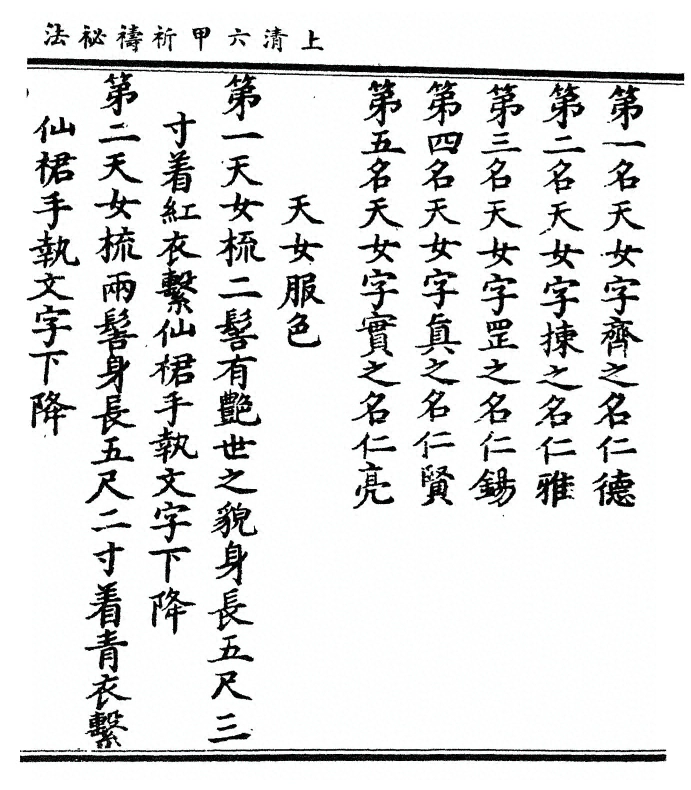 上清六甲祈禱祕法
第一名天女字齊之名仁德
第二名天女字揀之名仁雅
第三名天女字罡之名仁錫
第四名天女字眞之名仁賢
第五名天女字實之名仁亮
天女服色
第一天女梳二髻有艷世之貌身長五尺三
寸着紅衣繫仙裙手執文字下降
第二天女梳兩髻身長五尺二寸着青衣繫
仙裙手執文字下降